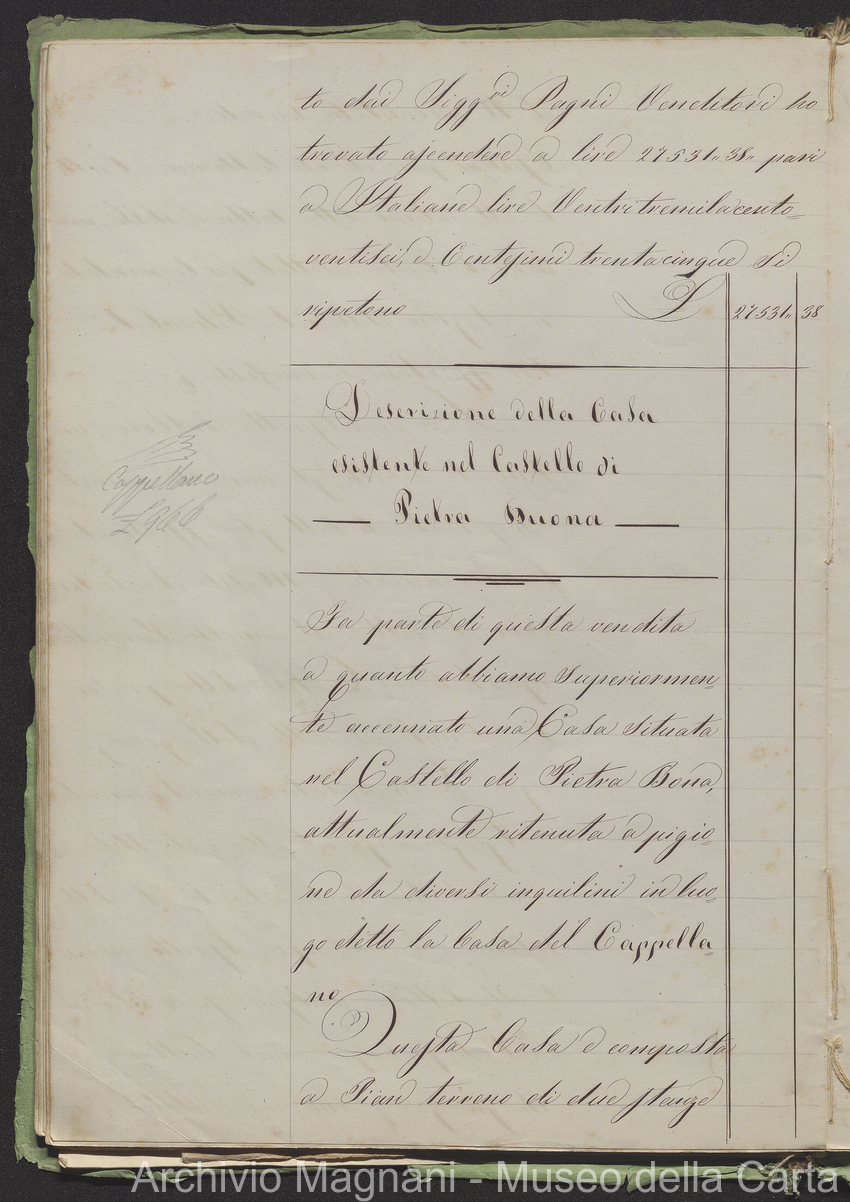 to dai Sigg.ri Pagni Venditori ho
trovato ascendere a lire 27531„ 38„ pari
a Italiane lire Ventitremilacento=
ventisei, e Centesimi trentacinque Si
ripetono L 27531„ 38
Descrizione della Casa
esistente nel Castello di
— Pietra Buona —
Cappellano
£966
Fa parte di questa vendita
a quanto abbiamo superiormen=
te accennato una Casa situata
nel Castello di Pietra Bona,
attualmente ritenuta a pigio=
ne da diversi inquilini in luo=
go detto la Casa del Cappella=
no
Questa Casa è composta
a Pian terreno di due stanze
Archivio Magnani - Museo della Carta